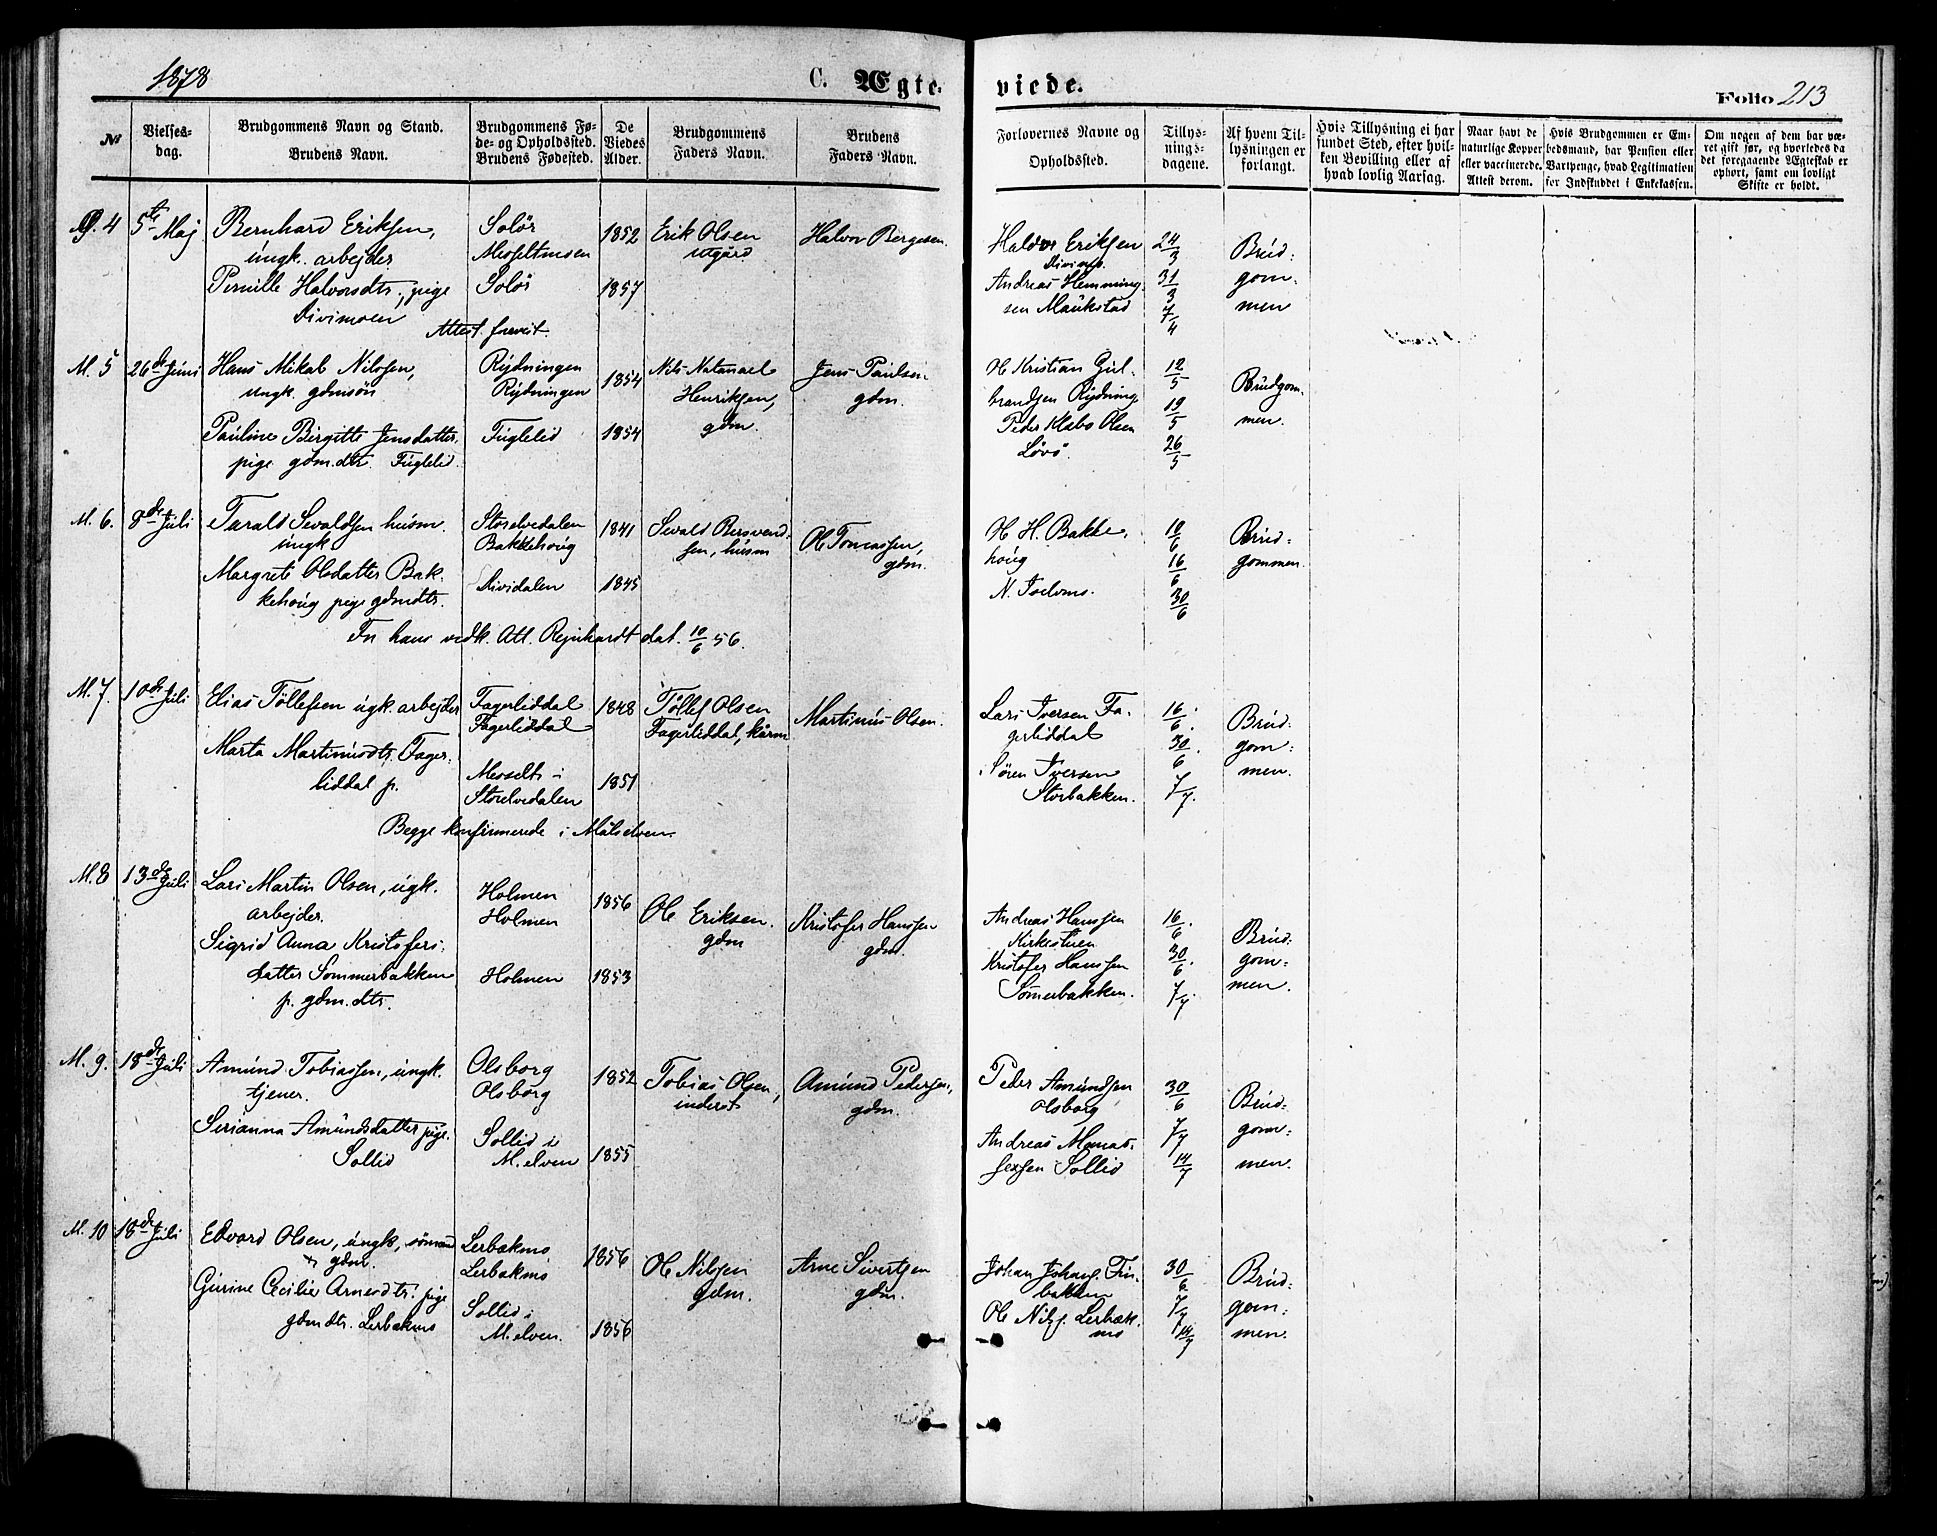 1878
C. Ægte-
viede.
Folio 213
No
Vielses-
dag.
Brudgommens Navn og Stand.
Brudens Navn.
Brudgommens Fø-
de- og Opholdssted.
Brudens Fødested.
De
Viedes
Alder.
Brudgommens
Faders Navn.
Brudens
Faders Navn.
Forlovernes Navne og
Opholdssted.
Tillys-
nings-
dagene.
Af hvem Til-
lysningen er
forlangt.
Hvis Tillysning ei har
fundet Sted, efter hvil-
ken Bevilling eller af
hvad lovlig Aarsag.
Naar havt de
naturlige Kopper
eller vaccinerede.
Attest derom.
Hvis Brudgommen er Em-
bedsmand, har Pension eller
Vartpenge, hvad Legitimation
for Indskuddet i Enkekassen.
Om nogen af dem har væ-
ret gift før, og hvorledes da
det foregaaende Ægteskab er
ophørt, samt om lovligt
Skifte er holdt.
4 5te Maj
Bernhard Eriksen,
ungk. arbejder
Pernille Halvorsdtr, pige
Divimoen
Attest forevist.
Solør
Messeltmoen
Solør
1852
1857
Erik Olsen
Halvor Bergesen.
Haldor Eriksen
Divimo.
Andreas Hemming
sen Maukstad
24/3
31/3
7/4
Brud-
gom-
men
M. 5 26de Juni
Hans Mikal Nilssen,
ungk. gdmsøn
Pauline Birgitte Jensdatter
pige gdm.dtr. Fuglelid.
Rydningen
Rydningen
Fuglelid
1854
1854
Nils Natanael
Henriksen,
gdm.
Jens Paulsen
gdm.
Ol Kristian Gul-
brandsen Rydning
Peder Klabo Olsen
Løvø.
12/5
19/5
26/5
Brudgom-
men.
M. 6. 8de Juli
Tarald Sevaldsen husm.
ungk.
Margrete Olsdatter Bak-
kehoug pige gdmdtr.
Storelvedalen
Bakkehoug
Dividalen
1841
1845
Sevald Bersvend-
sen, husm
Ol Tomassen,
gdm.
Ol H. Bakke-
houg
10/6
16/6
30/6
Brud-
gommen.
For hans vedk. Att. Rejnhardt dat. 10/6 56.
M. 7. 10de Juli
Elias Tøllefsen ugk. arbejder
Marta Martinusdtr. Fager-
liddal p.
Fagerliddal
Fagerliddal
Messelt i
Storelvedalen
1848
1851
Tøllef Olsen
Fagerliddal, kårm
Martinus Olsen.
Lars Iversen Fa-
gerliddal
Søren Iversen
Storbakken.
16/6
30/6
7/7
Brud-
gom-
men.
Begge konfirmerede i Målselven.
M. 8 13de Juli
Lars Martin Olsen, ugk.
arbejder.
Sigrid Anna Kristofers-
datter Sommerbakken
p. gdm.dtr.
Holmen
Holmen
Holmen
1856
1853
Ol Eriksen.
gdm
Kristofer Hanssen
gdm.
Andreas Hanssen
Kirkestuen
Kristofer Hanssen
Somerbakken.
16/6
30/6
7/7
Brud-
gom-
men.
M. 9. 18de Juli
Amund Tobiassen, ungk.
tjener.
Serianna Amundsdatter pige.
Sollid
Olsborg
Olsborg
Sollid i
M.elven
1852
1855
Tobias Olsen,
inderst
Amund Pedersen,
gdm.
Peder Amundsen
Olsborg
Andreas Monas-
sessen Sollid
30/6
7/7
14/7
Brud-
gom-
men.
M. 10 18de Juli
Edvard Olsen, ungk, sømand
gdm.
Gurine Cecilie Arnesdtr. pige
gdmdtr. Lerbakmo
Lerbakmo
Lerbakmo
Sollid i
M.elven.
1856
1856
Ol Nilssen
gdm.
Arne Sivertsen
gdm.
Johan Johans. Fin-
bakken
Ol Nilss. Lerbak-
mo
30/6
7/7
14/7
Brud-
gom-
men.